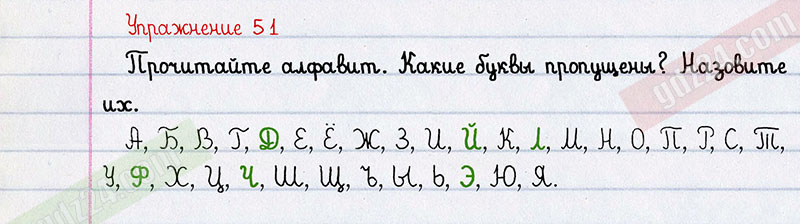 Упражнение 51
Прочитайте алфавит. Какие буквы пропущены? Назовите
их.
А, Б, В, Г, Д, Е, Ё, Ж, З, И, Й, К, Л, М, Н, О, П, Р, С, Т,
У, Ф, Х, Ц, Ч, Ш, Щ, Ъ, Ы, Ь, Э, Ю, Я.
gdz24.com
gdz24.com